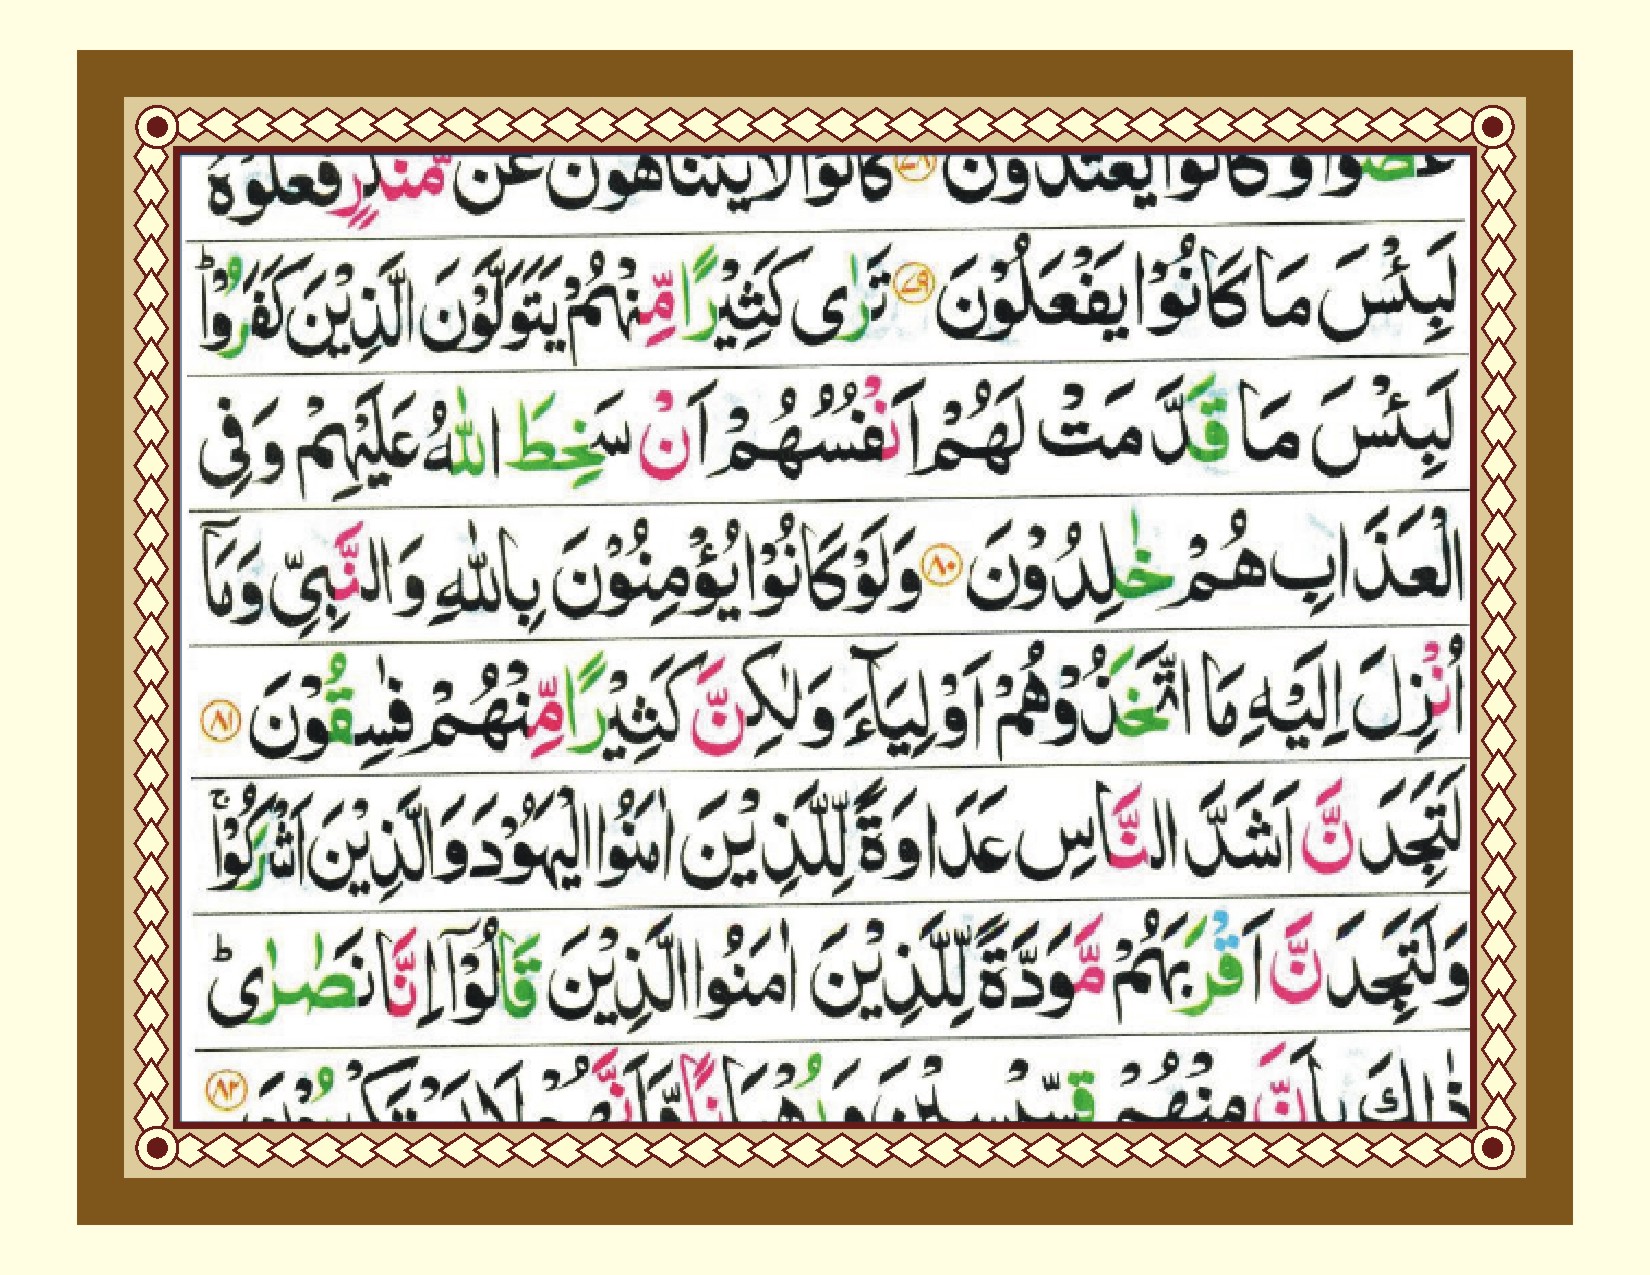 عَصَوْا وَّكَانُوْا يَعْتَدُوْنَ ﴿۷۸﴾ كَانُوْا لَا يَتَنَاهَوْنَ عَنْ مُّنْكَرٍ فَعَلُوْهُ
لَبِئْسَ مَا كَانُوْا يَفْعَلُوْنَ ﴿۷۹﴾ تَرٰى كَثِيْرًا مِّنْهُمْ يَتَوَلَّوْنَ الَّذِيْنَ كَفَرُوْا ؕ
لَبِئْسَ مَا قَدَّمَتْ لَهُمْ اَنْفُسُهُمْ اَنْ سَخِطَ اللّٰهُ عَلَيْهِمْ وَفِى
الْعَذَابِ هُمْ خٰلِدُوْنَ ﴿۸۰﴾ وَلَوْ كَانُوْا يُؤْمِنُوْنَ بِاللّٰهِ وَالنَّبِىِّ وَمَاۤ
اُنْزِلَ اِلَيْهِ مَا اتَّخَذُوْهُمْ اَوْلِيَآءَ وَلٰكِنَّ كَثِيْرًا مِّنْهُمْ فٰسِقُوْنَ ﴿۸۱﴾
لَتَجِدَنَّ اَشَدَّ النَّاسِ عَدَاوَةً لِّلَّذِيْنَ اٰمَنُوا الْيَهُوْدَ وَالَّذِيْنَ اَشْرَكُوْا ۚ
وَلَتَجِدَنَّ اَقْرَبَهُمْ مَّوَدَّةً لِّلَّذِيْنَ اٰمَنُوا الَّذِيْنَ قَالُوْۤا اِنَّا نَصٰرٰى ؕ
ذٰلِكَ بِاَنَّ مِنْهُمْ قِسِّيْسِيْنَ وَرُهْبَانًا وَّاَنَّهُمْ لَا يَسْتَكْبِرُوْنَ ﴿۸۲﴾